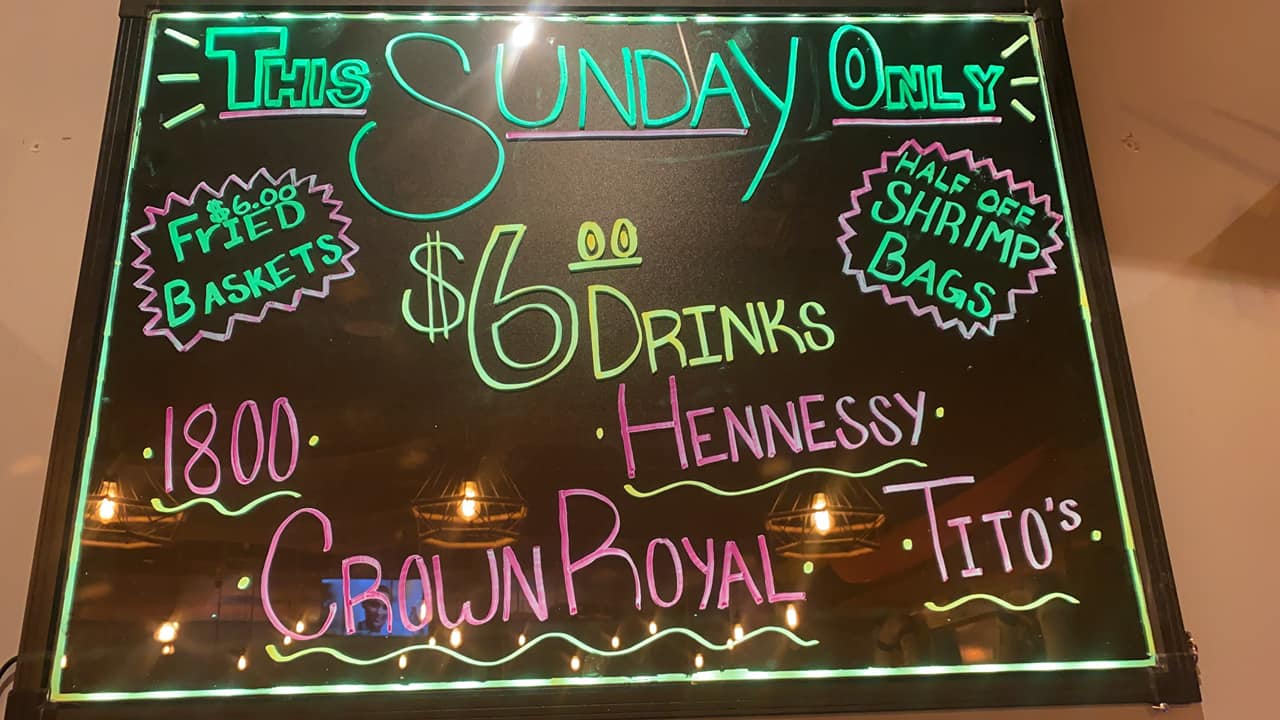 THIS SUNDAY ONLY
$6.00
FRIED
BASKETS
HALF OFF
SHRIMP
BAGS
$6.00 DRINKS
1800
HENNESSY
CROWN ROYAL
TITO'S